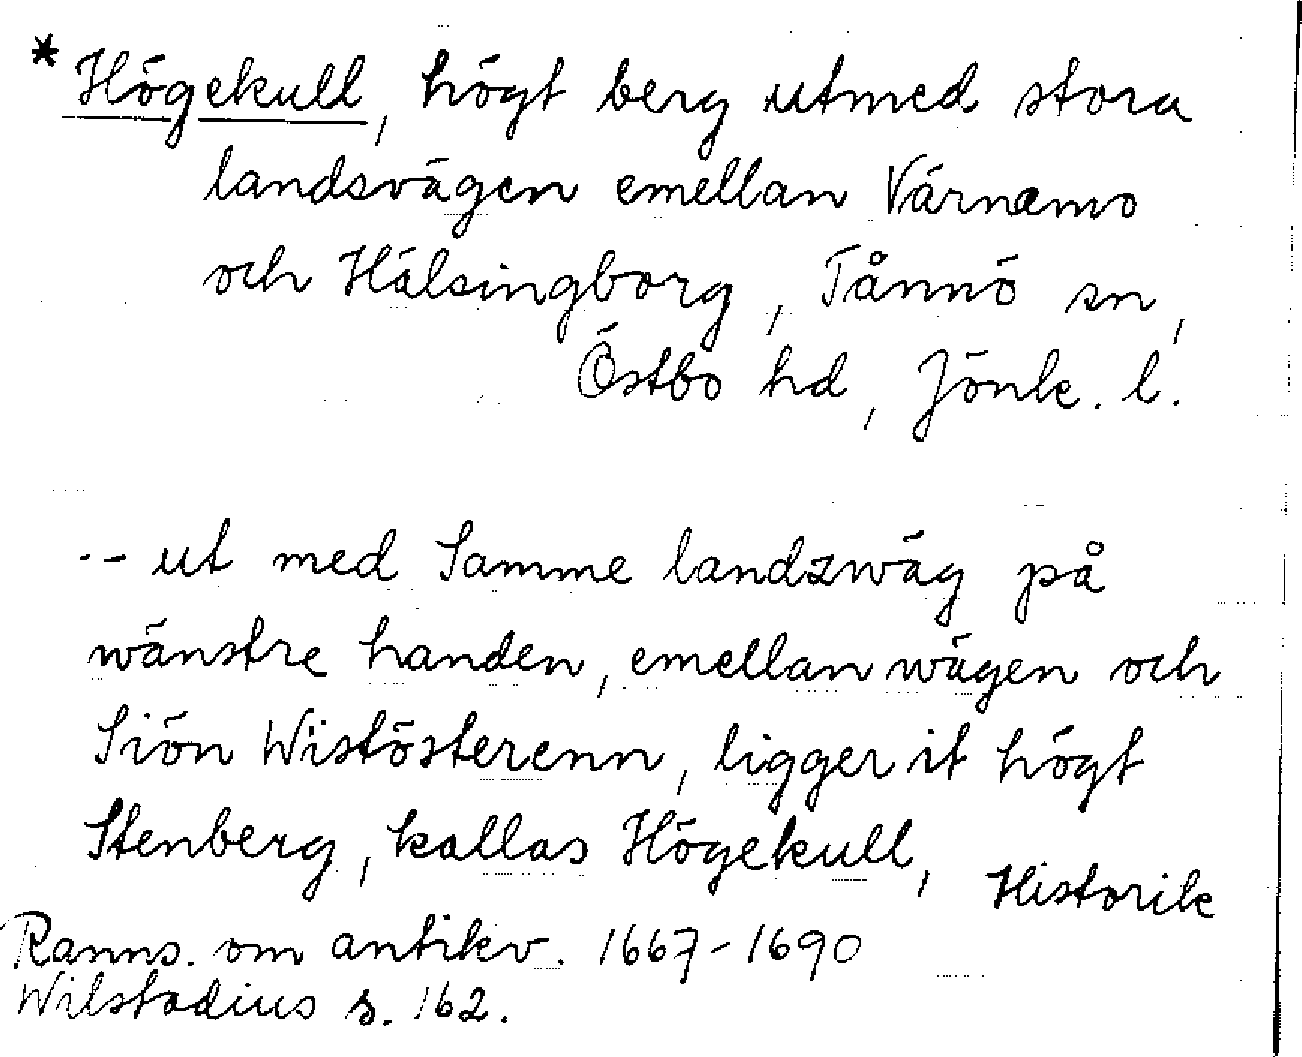 * Högekull, högt berg utmed stora
landsvägen emellan Värnamo
och Hälsingborg, Tånnö sn,
Östbo hd, Jönk. l.
-- ut med Samme landzwäg på
wänstre handen, emellan wägen och
Siön Wistösterenn, ligger it högt
Stenberg, kallas Högekull, Historik
Ranns. om antikv. 1667-1690
Wilstadius s. 162.